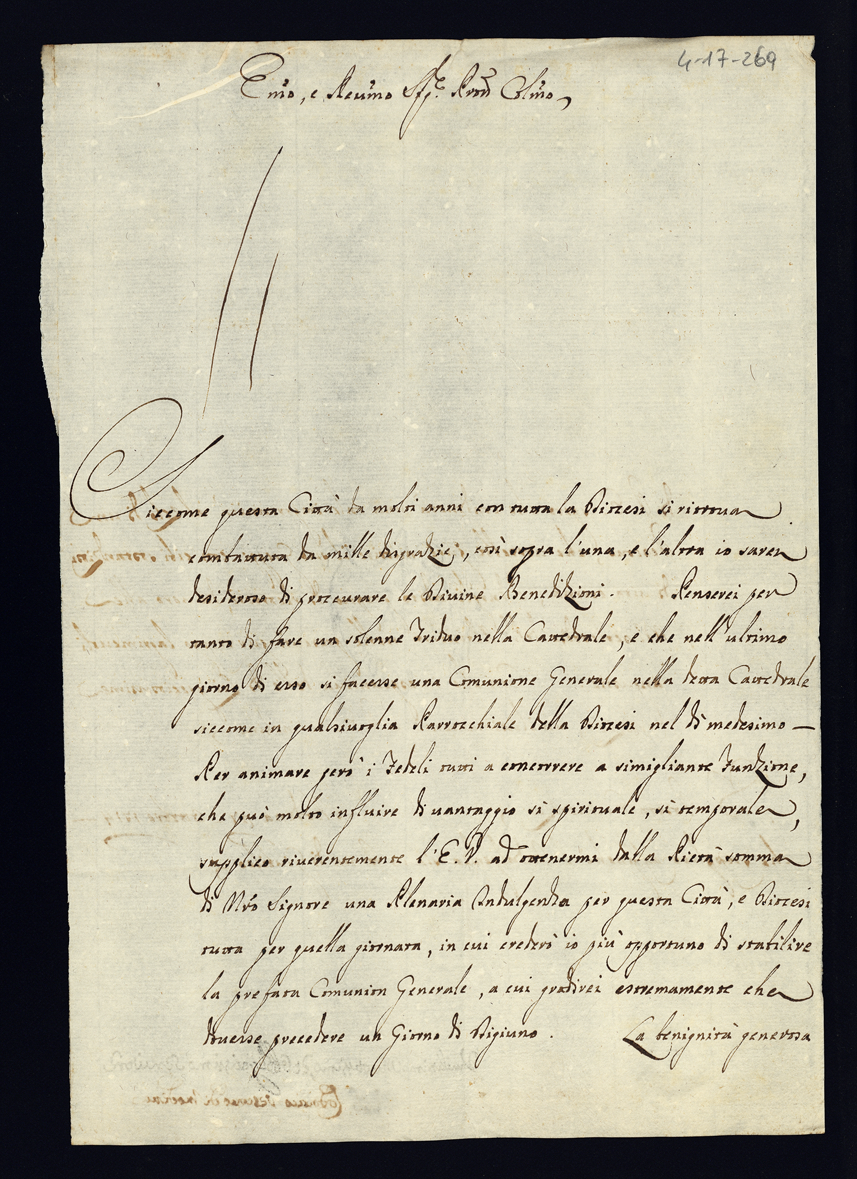 4-17-269
Emo, e Revmo Sigre Pron Colmo
Siccome questa Città da molti anni con tutta la Diocesi si ritrova
combattuta da mille disgrazie, così sopra l'una, e l'altra io sarei
desideroso di procurare le Divine Benedizioni. Penserei per
tanto di fare un solenne Triduo nella Cattedrale, e che nell'ultimo
giorno di esso si facesse una Comunione Generale nella detta Cattedrale
siccome in qualsivoglia Parrocchiale della Diocesi nel dì medesimo —
Per animare però i Fedeli tutti a concorrere a simigliante Funzione,
che può molto influire di vantaggio sì spirituale, sì temporale,
supplico riverentemente l'E. V. ad ottenermi dalla Pietà somma
di Nro Signore una Plenaria Indulgenza per questa Città, e Diocesi
tutta per quella giornata, in cui crederò io più opportuno di stabilire
la prefata Comunion Generale, a cui gradirei estremamente che
dovesse precedere un Giorno di Digiuno. La benignità generosa